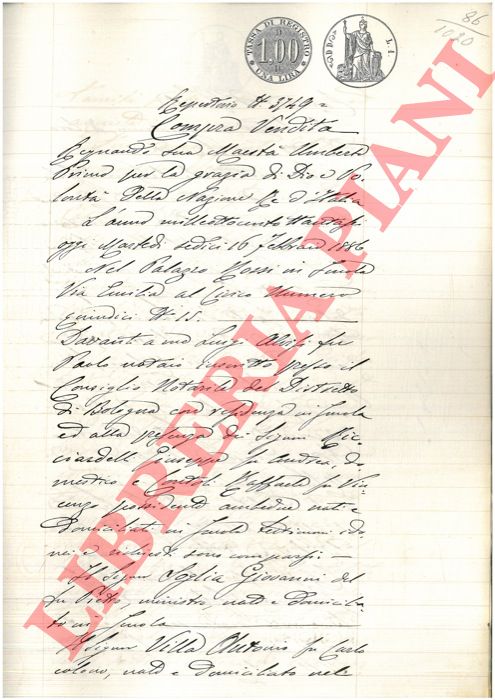 86
1020
TASSA DI REGISTRO
1.00
UNA LIRA
Repertorio N 3749
Compra Vendita
Regnando Sua Maestà Umberto
Primo per la grazia di Dio e Vo-
lontà della Nazione Re d'Italia
L'anno milleottocento ottantasei
oggi Martedì sedici 16 Febbraio 1886
Nel Palazzo Rossi in Imola
Via Emilia al Civico Numero
quindici N° 15.
Davanti a me Luigi fu
Paolo notaio inscritto presso il
Consiglio Notarile del Distretto
di Bologna con residenza in Imola
ed alla presenza dei Signori Ric-
ciardelli Giuseppe fu Andrea, do-
mestico e Raffaele fu Vin-
cenzo possidente ambedue nati e
domiciliati in Imola testimoni ido-
nei e richiesti sono comparsi -
Il Signor Soglia Giovanni del
fu Pietro, ministro, nato e domicilia-
to in Imola
Il Signor Villa Antonio fu Carlo
colono, nato e domiciliato nel
LIBRERIA PIANI